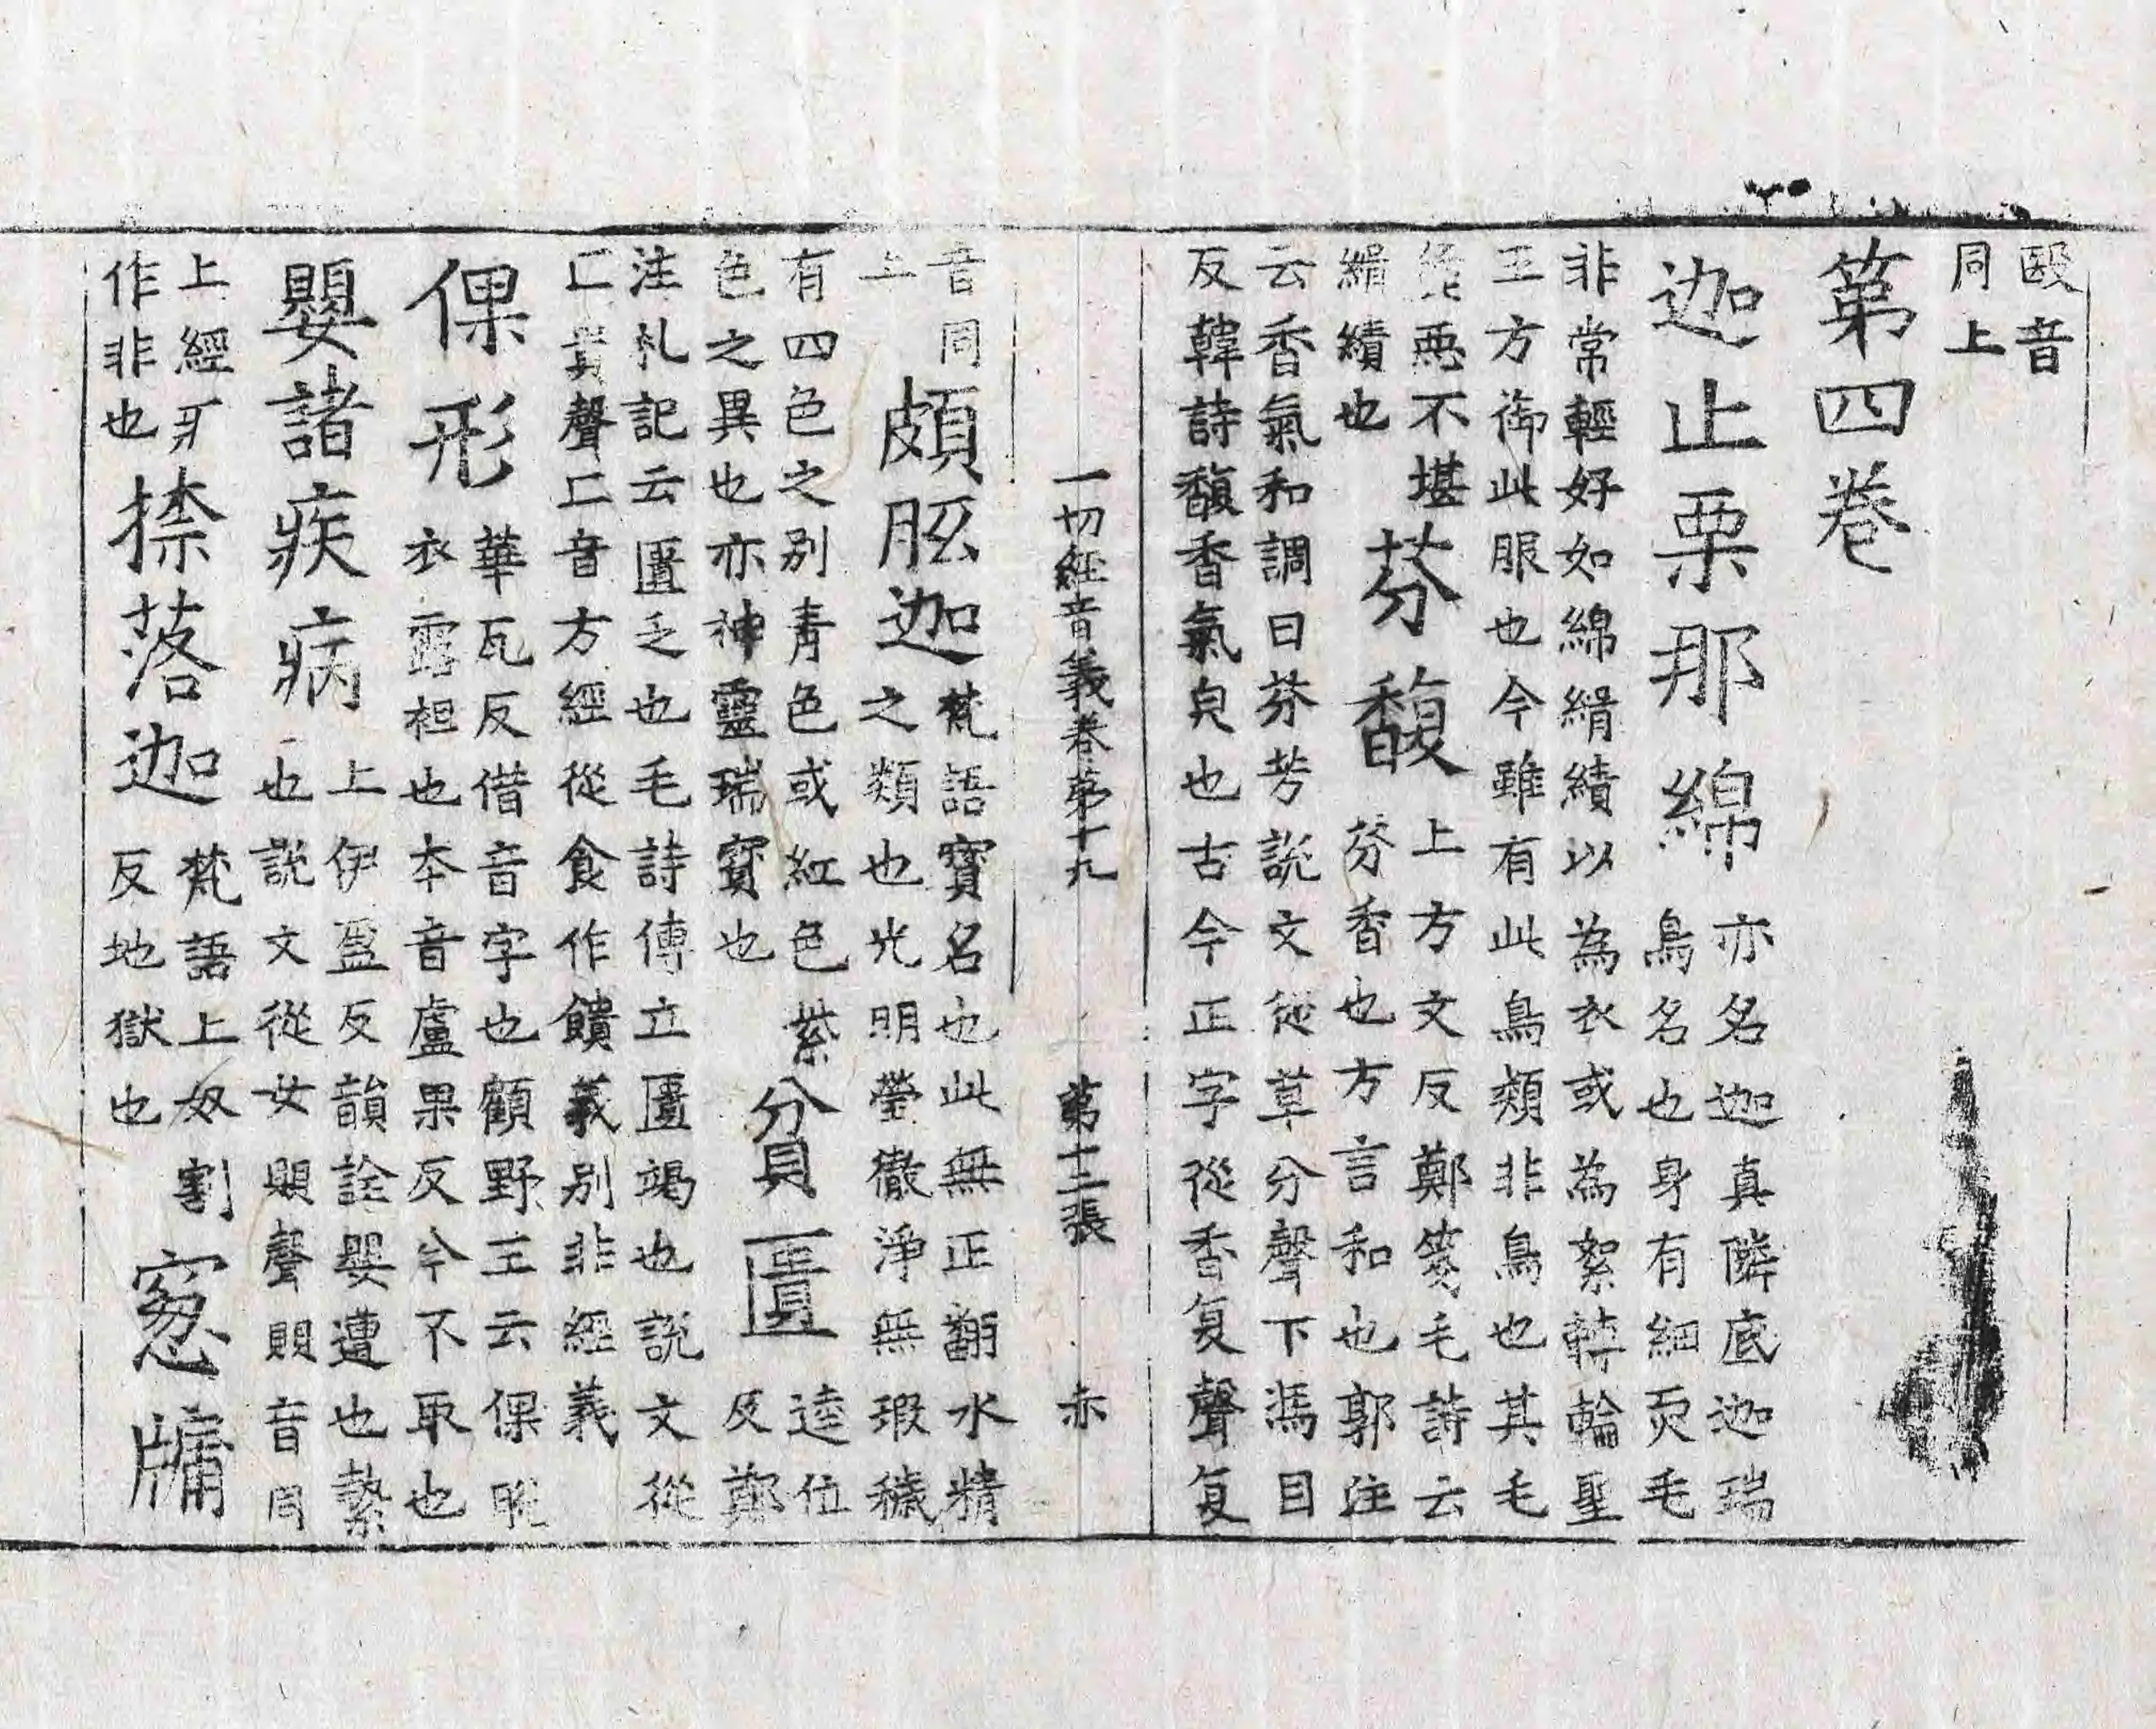 毆音
同上
第四卷
迦止栗那綿
亦名迦真隣底迦瑞
鳥名也身有細耎毛
非常輕好如綿緝績以為衣或為絮轉輪聖
王方御此服也今雖有此鳥類非鳥也其毛
麁惡不堪
緝績也
芬馥
上方文反鄭箋毛詩云
芬香也方言和也郭注
云香氣和調曰芬芳說文從草分聲下馮目
反韓詩馥香氣皃也古今正字從香复聲复
一切經音義卷第十九 第十二張 赤
音同
上
頗胝迦
梵語寶名也此無正翻水精
之類也光明瑩徹淨無瑕穢
有四色之別青色或紅色紫
色之異也亦神靈瑞寶也
貧匱
逵位
反鄭
注札記云匱乏也毛詩傳立匱竭也說文從
匚貴聲匚音方經從食作饋義別非經義
倮形
華瓦反借音字也顧野王云倮脫
衣露袒也本音盧果反今不取也
嬰諸疾病
上伊盈反韻詮嬰遭也縶
也說文從女賏聲賏音同
上經牙
作非也
捺落迦
梵語上奴割
反地獄也
窓牗